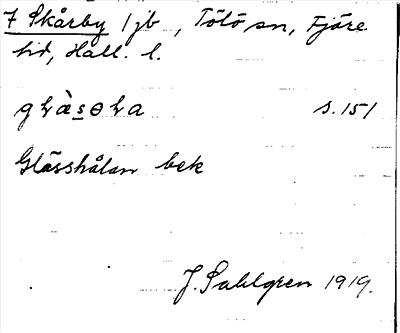 7 Skårby 1 jb, Tölö sn, Fjäre
hd, Hall. l.
s. 151
Glässhålan bek
J. Sahlgren 1919.